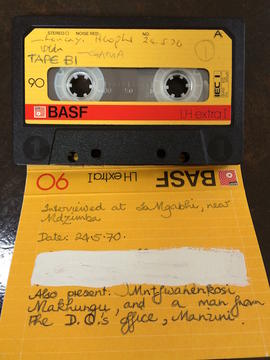 STEREO NOISE RED. NO. A
24.5.70
with GAMA
TAPE B1
90
IEC I
BASF LH extra I
90 LH extra I BASF
Interviewed at LaMgabhi, near
Mdzimba
Date: 24.5.70.
Also present: Mntfwanenkosi
Makhungu, and a man from
the D.O.'s office, Manzini.